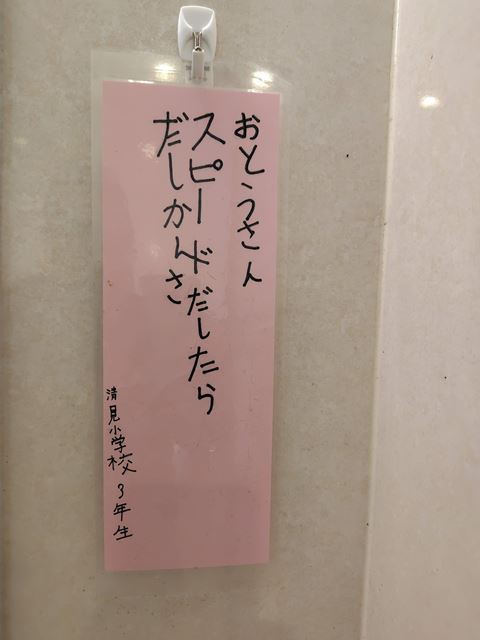 おとうさん
スピードだしたら
だしかんさ
清見小学校 3年生